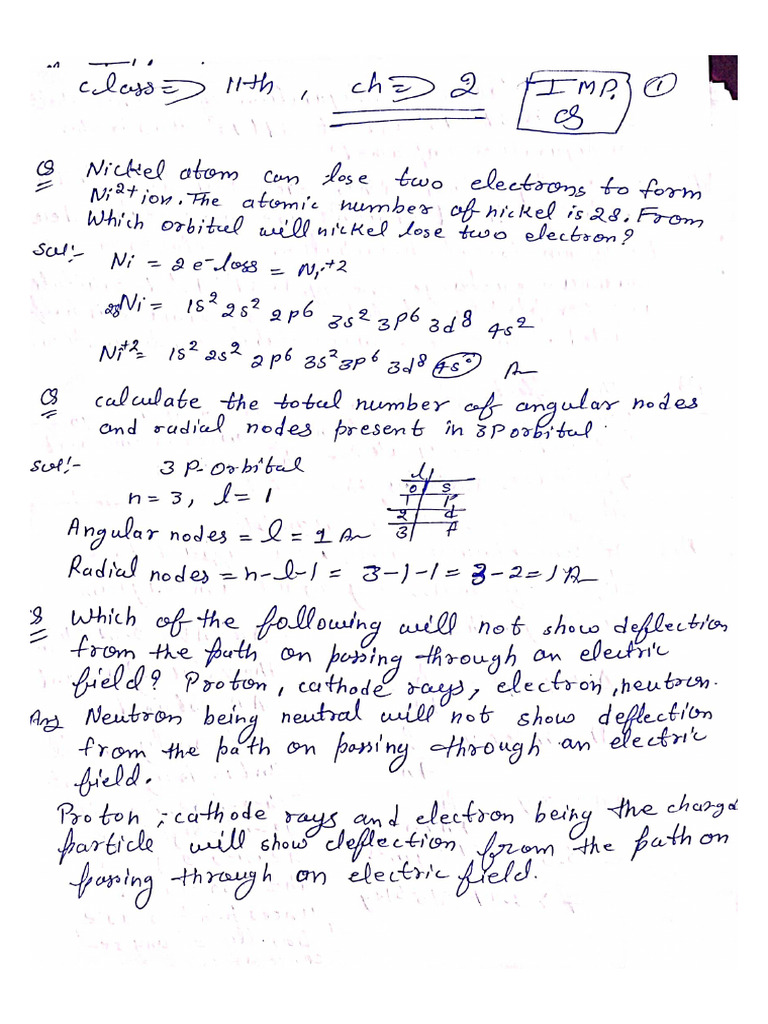 class ⇒ 11th, ch ⇒ 2 IMP. Q ①
Q Nickel atom can lose two electrons to form
Ni²⁺ ion. The atomic number of nickel is 28. From
Which orbital will nickel lose two electron?
Sol:- Ni = 2e⁻ loss = Ni⁺²
₂₈Ni = 1s² 2s² 2p⁶ 3s² 3p⁶ 3d⁸ 4s²
Ni⁺² = 1s² 2s² 2p⁶ 3s² 3p⁶ 3d⁸ 4s⁰ A
Q calculate the total number of angular nodes
and radial nodes present in 3P orbital.
Sol:- 3 P-orbital
n = 3, l = 1
l
0 s
1 p
2 d
3 f
Angular nodes = l = 1 A
Radial nodes = n-l-1 = 3-1-1 = 3-2 = 1 A
Q Which of the following will not show deflection
from the path on passing through an electric
field? Proton, cathode rays, electron, neutron.
Ans Neutron being neutral will not show deflection
from the path on passing through an electric
field.
Proton, cathode rays and electron being the charged
particle will show deflection from the path on
passing through an electric field.